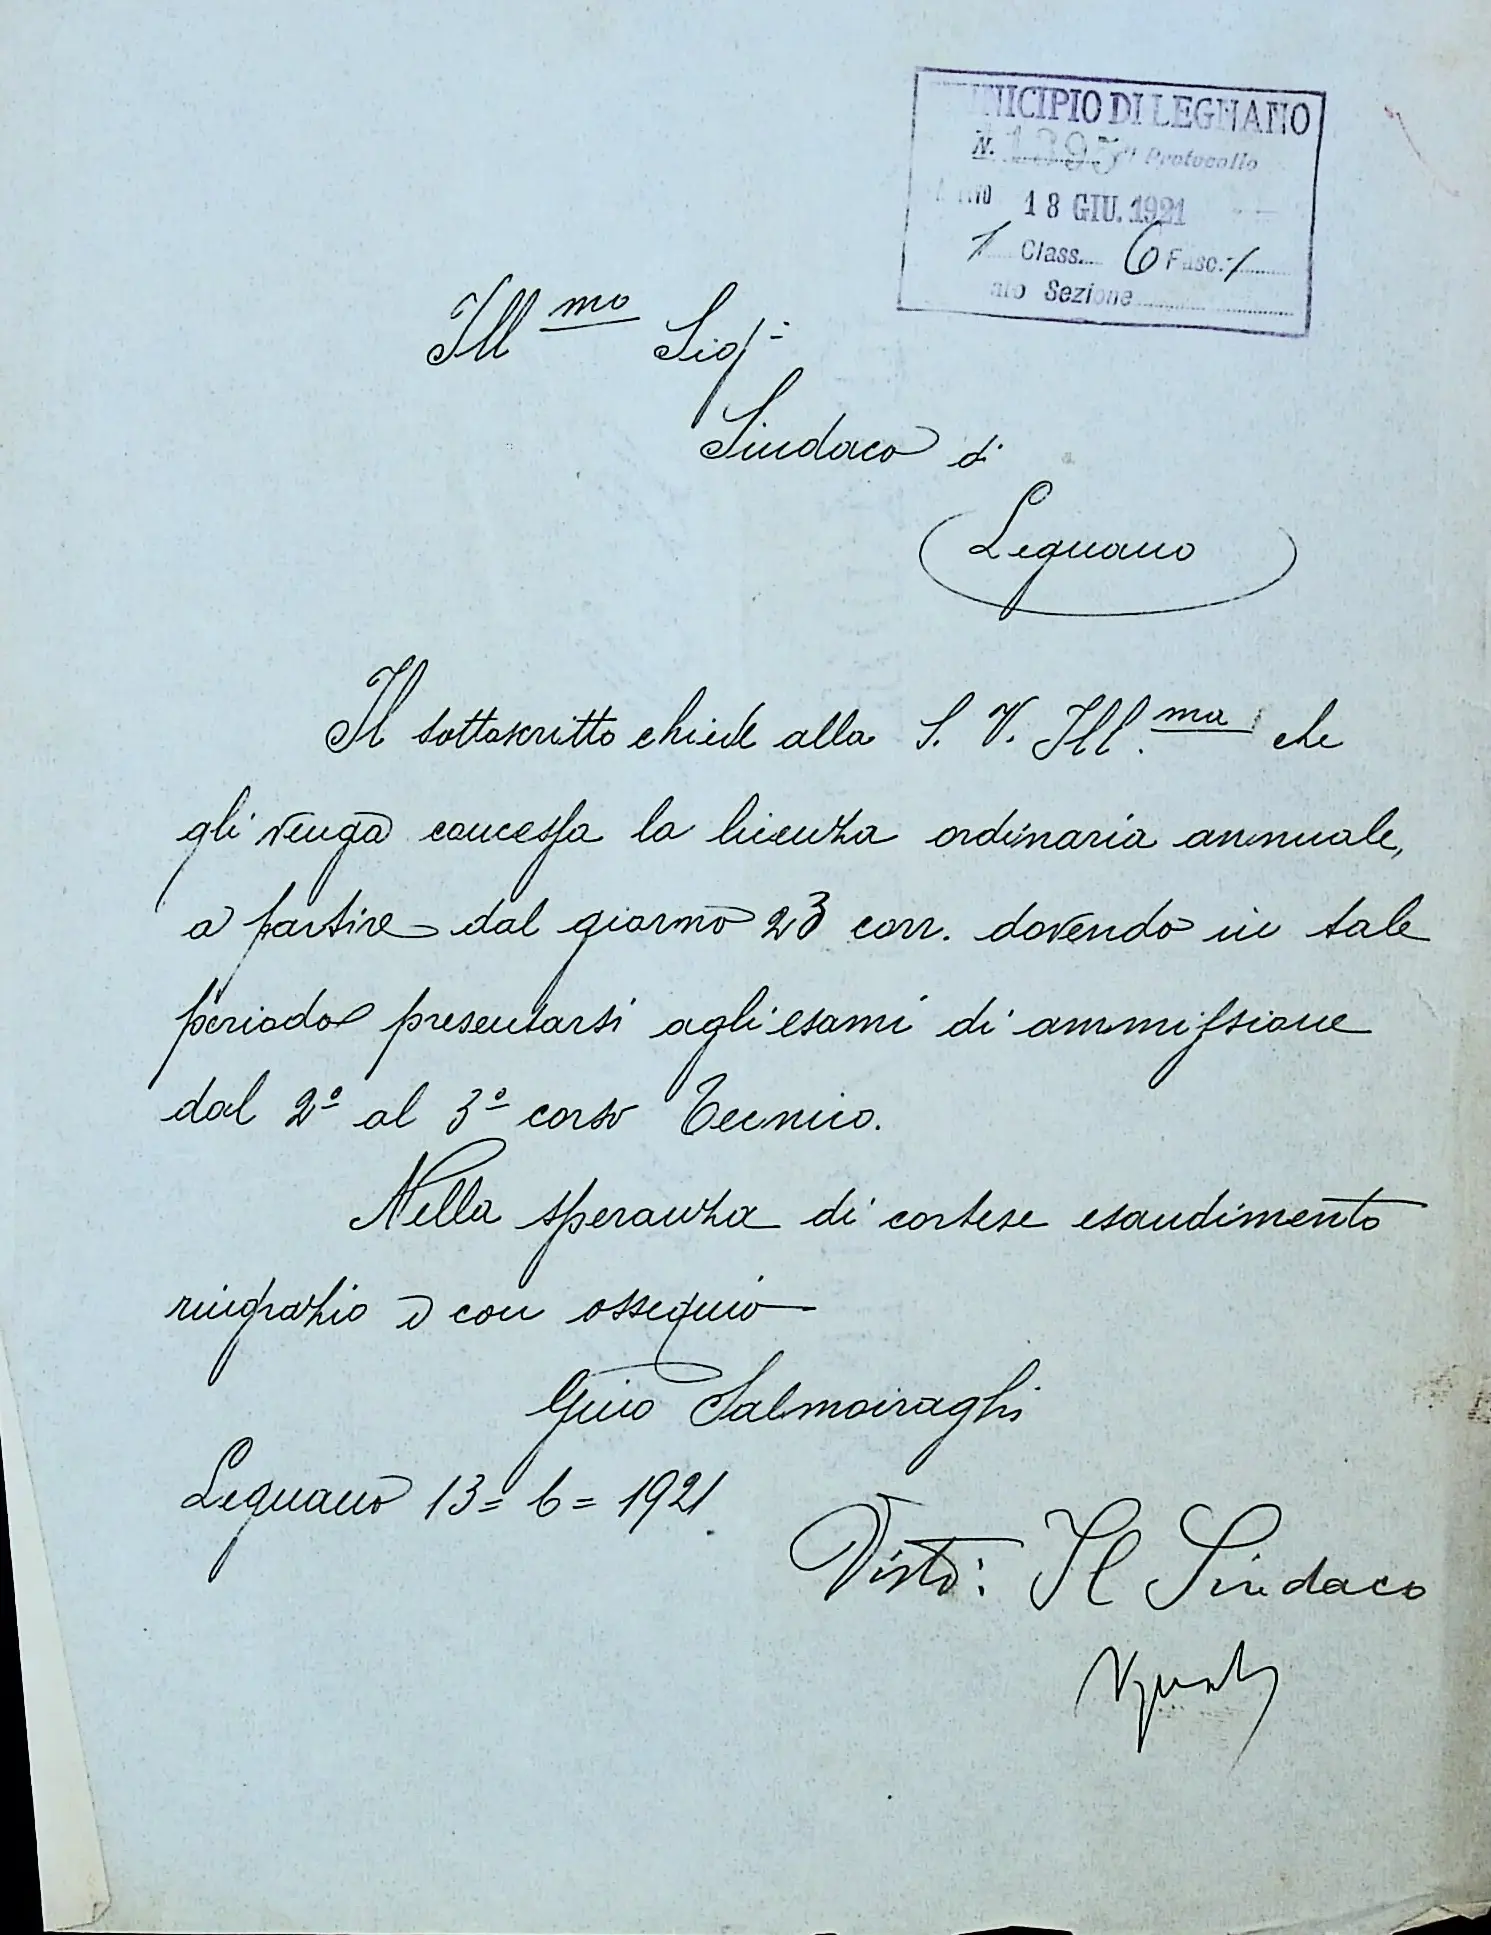 MUNICIPIO DI LEGNANO
N. 1395 Protocollo
18 GIU. 1921
1 Class. 6 Fasc. 1
Sezione
Ill.mo Sig.
Sindaco di
Legnano
Il sottoscritto chiede alla S. V. Ill.ma che
gli venga concessa la licenza ordinaria annuale,
a partire dal giorno 23 corr. dovendo in tale
periodo presentarsi agli esami di ammissione
dal 2º al 3º corso Tecnico.
Nella speranza di cortese esaudimento
ringrazio e con ossequio
Gino Salmoiraghi
Legnano 13=6=1921.
Visto: Il Sindaco